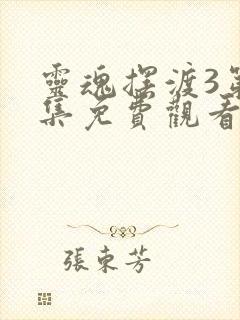 靈魂擺渡3第
集免費觀看
張東芳